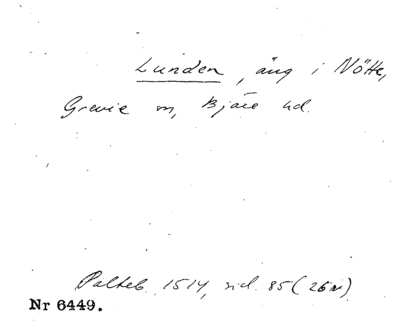 Lunden, äng i Nötte,
Grevie sn, Bjäre hd.
Palteb. 1514, sid. 85 (26 n)
Nr 6449.